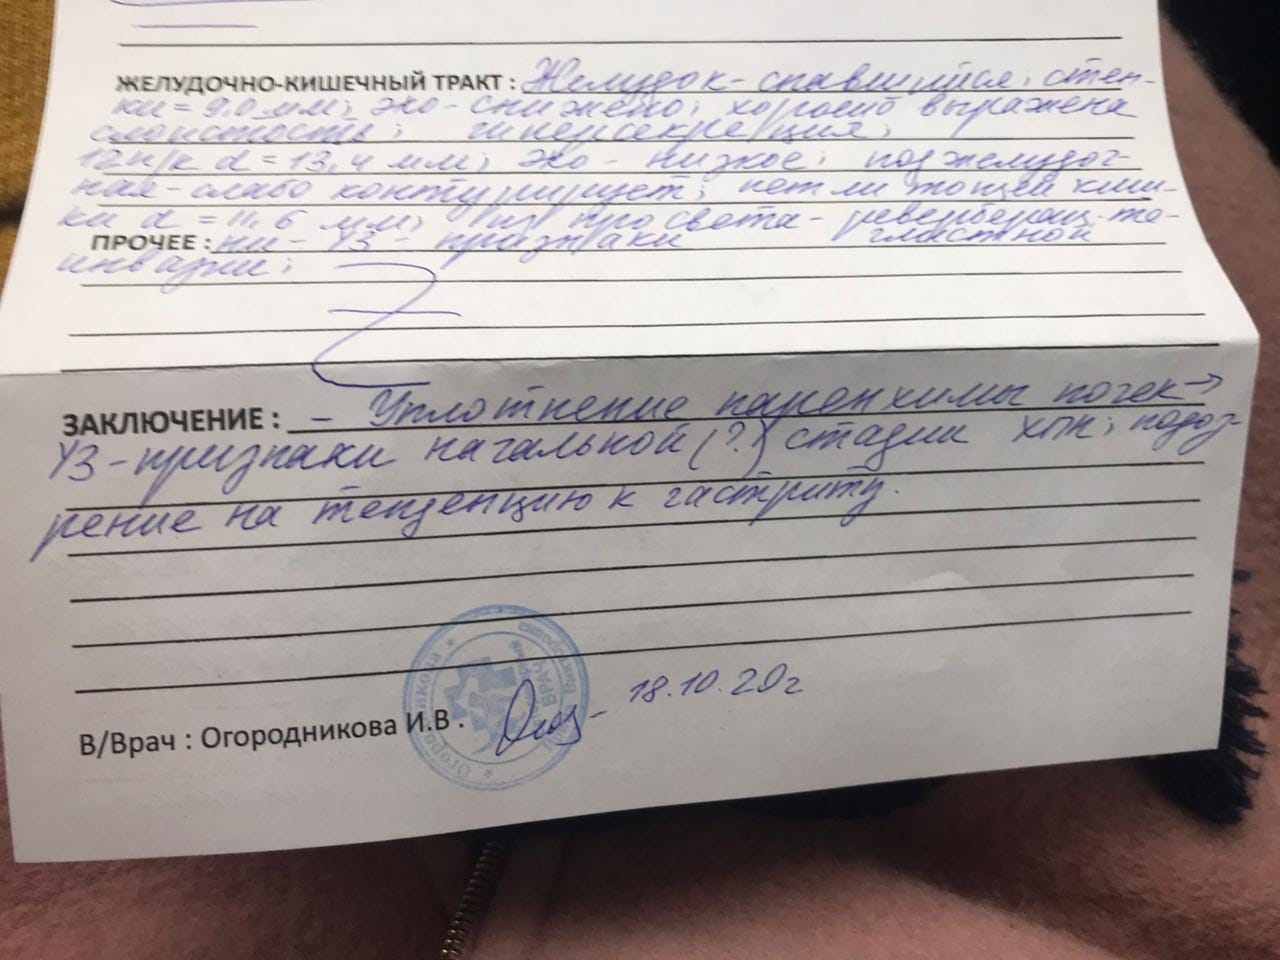 ЖЕЛУДОЧНО-КИШЕЧНЫЙ ТРАКТ : Желудок - спавшийся; стен-
ки = 9,0 мм; эхо - снижено; хорошо выражена
слоистость; гиперсекреция;
12п/к d = 13,4 мм; эхо - низкое; поджелудоч-
ная - слабо контурирует; петли тощей киш-
ки d = 11,6 мм; из просвета - реверберац.
ПРОЧЕЕ : УЗ - признаки глистной
инвазии;
ЗАКЛЮЧЕНИЕ : - Уплотнение паренхимы почек →
УЗ - признаки начальной (?) стадии хпн; подоз-
рение на тенденцию к гастриту.
18.10.20г
В/Врач : Огородникова И.В.
ВРАЧ